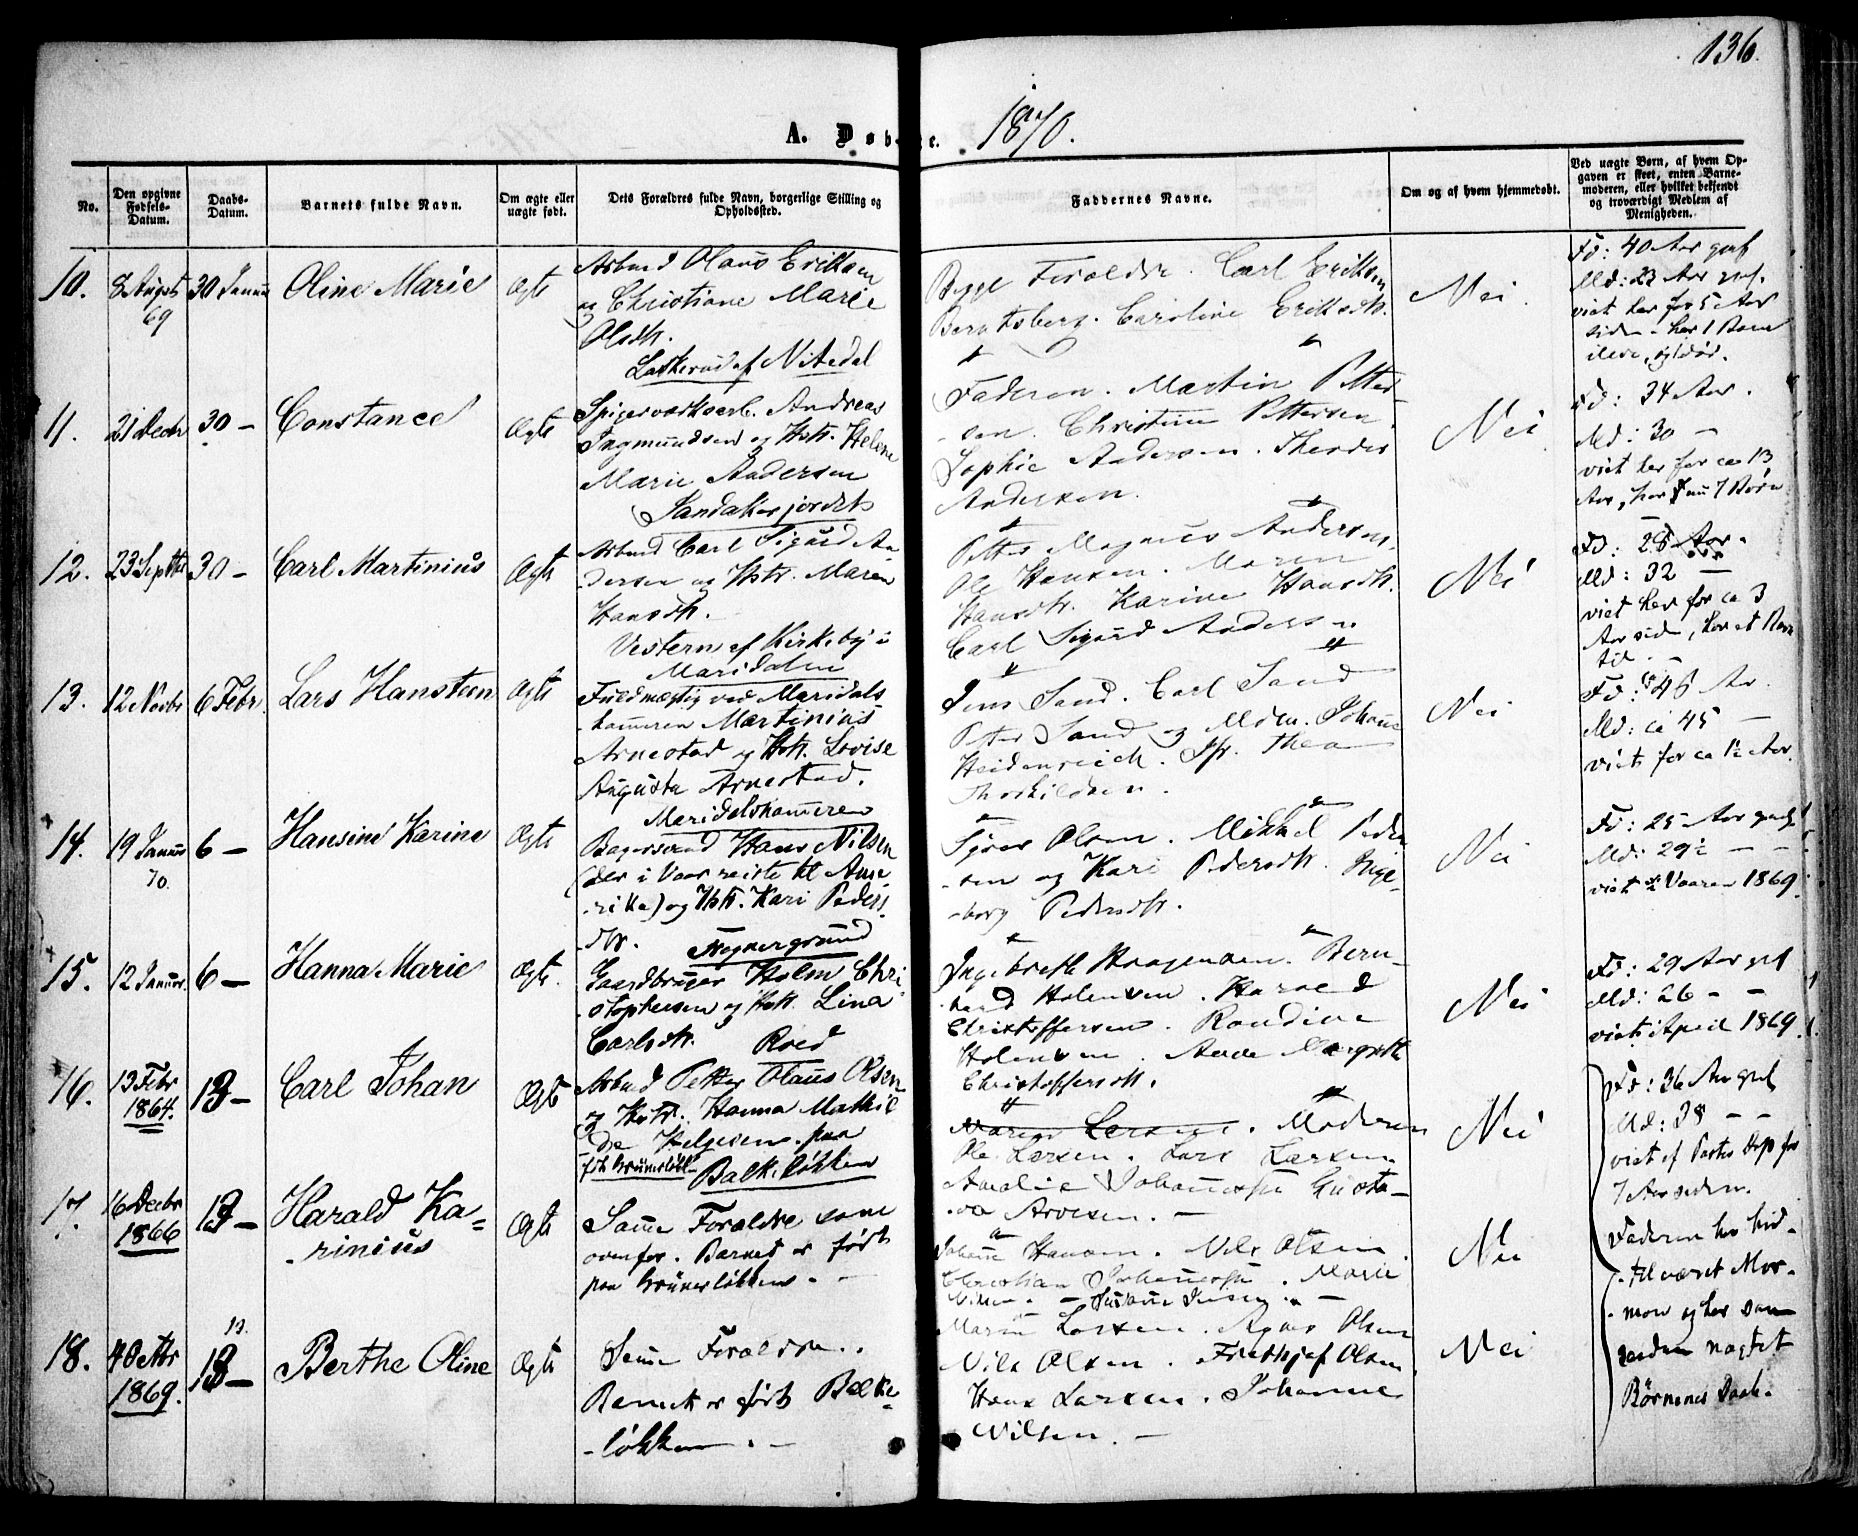 136.
1870.
A. Døb e.
No.
Den opgivne Fødsels-Datum.
Daabs-Datum.
Barnets fulde Navn.
Om ægte eller uægte født.
Dets Forældres fulde Navn, borgerlige Stilling og Opholdssted.
Faddernes Navne.
Om og af hvem hjemmedøbt.
Ved uægte Børn, af hvem Opgaven er skeet, enten Barnemoderen, eller hvilket bekjendt og troværdigt Medlem af Menigheden.
10.
8 August
69
30 Januar
Oline Marie
Ægte
Arbmd Olaus Eriksen
og Christiane Marie
Olsdtr.
Laskerud af Nitedal
Begge Forældre. Carl Eriksen
Berntsberg. Caroline Eriksdtr.
Nei.
Fd: 40 Aar gml
Md: 23 Aar gml.
viet her for 5 Aar
siden - her 1 Barn
ilive, og 1 død.
11.
21 Decbr
30 -
Constance
Ægte
Spigerværksarb. Andreas
Ingmundsen og Hstr. Helene
Marie Andersen
Sandakerjordet
Faderen. Martin Petter-
-sen. Christine Pettersen
Sophie Andersen. Theodor
Andersen.
Nei
Fd: 34 Aar.
Md: 30 -
viet her for ca 13
Aar, har 7 Børn
12.
23 Septbr
30 -
Carl Martinius
Ægte
Arbmd Carl Sigurd An
-dersen og Hstr. Maren
Hansdtr.
Vestern af Kirkeby i
Maridalen
Petter Magnus Andersen.
Ole Hansen. Maren
Hansdtr. Karine Hansdtr.
Carl Sigurd Andersen
Nei
Fd: 28 Aar.
Md: 32 -
viet her for ca 3
Aar sid, har et Barn
til. -
13.
12 Novbr
6 Febr.
Lars Hansteen
Ægte
Fuldmægtig ved Maridals
-hammeren Martinius
Arnestad og Hstr. Lovise
Augusta Arnestad.
Maridalshammeren
Jens Sand. Carl Sand
Petter Sand og Mdm. Johanne
Heidenreich. Jfr. Thea
Thorkildsen.
Nei
Fd: 48 Aar.
Md: ca 45 -
viet for ca 1½ Aar.
14.
19 Januar
70.
6 -
Hansine Karine
Ægte
Bagersvend Hans Nilsen
(der i Vaar reiste til Ame
-rika) og Hstr. Kari Peders
dtr. Wognergrund
Syver Olsen. Mikkel Peder
-sen og Kari Pedersdtr. Inge-
-borg Pedersdtr.
Nei
Fd: 25 Aar gml
Md: 29½ - -
viet Vaaren 1869.
15.
12 Januar.
6 -
Hanna Marie
Ægte.
Gaardbruger Holm Chri
-stophersen og Hstr. Lina
Carlsdtr. Roed
Ingebreth Haagensen. Bern-
hard Holensen. Harald
Christoffersen. Randine
Holensen. Anne Margrethe
Christoffersdtr.
Nei
Fd: 29 Aar gml
Md: 26 - -
viet i April 1869.
16.
13 Febr
1864.
13 -
Carl Johan
Ægte
Arbmd Petter Olaus Olsen
og Hstr. Hanna Mathil
-de Helgesen. paa
født Grünerløkk-
Balkeløkken
Maren Larsen. Moderen
Ole Larsen. Lars Larsen.
Amalie Johannesen Gusta-
-va Arvesen. -
Nei
Fd: 36 Aar gml
Md: 38 - -
viet af Pastor Hop for
7 Aar siden.
17.
16 Decbr
1866
13 -
Harald Ka-
-rinius
Ægte
Samme Forældre som
ovenfor. Barnet er født
paa Grünerløkken. -
Johanne Hansen. Nils Olsen.
Christian Johannesen. Marie
Nilsen. - Susanne Jensen. -
Nei
Faderen har hid-
-til været Mor-
mon og har som
saadan nægtet
Børnenes Daab.
18.
4 Octbr
1869.
13.
13 -
Berthe Oline
Ægte
Samme Forældre.
Barnet er født Balke-
-løkken. -
Maren Larsen. Agnes Olsen
Nils Olsen. Fredthjof Olsen
Hans Larsen. Johanne
Nilsen. -
Nei